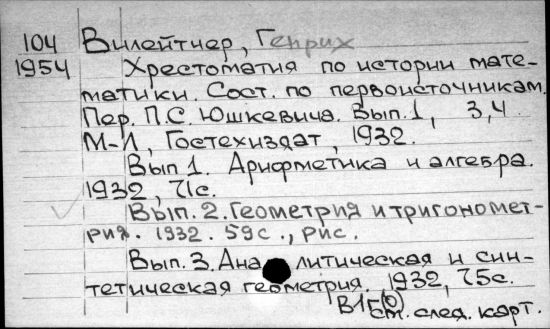 104 Вилейтнер, Генрих
1954 Хрестоматия по истории мате-
матики. Сост. по первоисточникам.
Пер. П.С. Юшкевича. Вып. 1, 3, 4.
М-Л, Гостехиздат, 1932.
Вып 1. Арифметика и алгебра.
1932, 71с.
Вып. 2. Геометрия и тригономет-
рия. 1932. 59с., рис.
Вып. 3. Аналитическая и син-
тетическая геометрия. 1932, 75с.
см. след. карт.